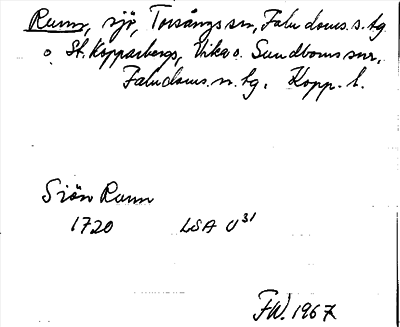 Runn, sjö, Torsångs sn, Falu doms. s. tg.
o. St. Kopparbergs, Vika o. Sundborns snr,
Falu doms. n. tg. Kopp. l.
Sjön Runn
1720 LSA U31
FW. 1967